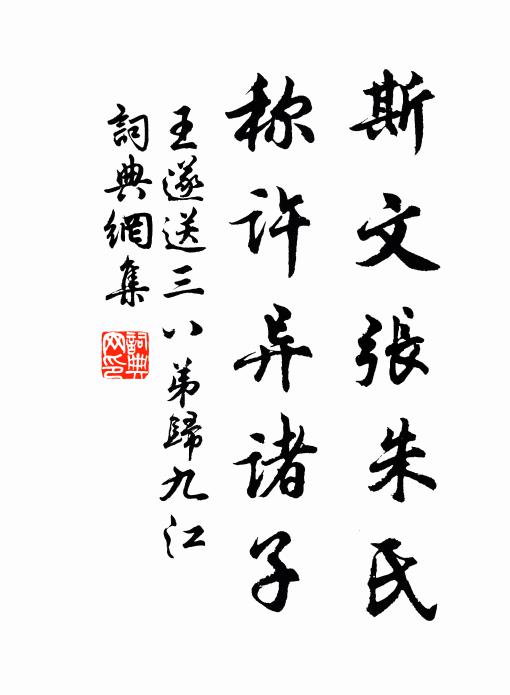 斯文張朱氏
称许异諸子
王遂送三八弟歸九江
詞典網集
詞典网印